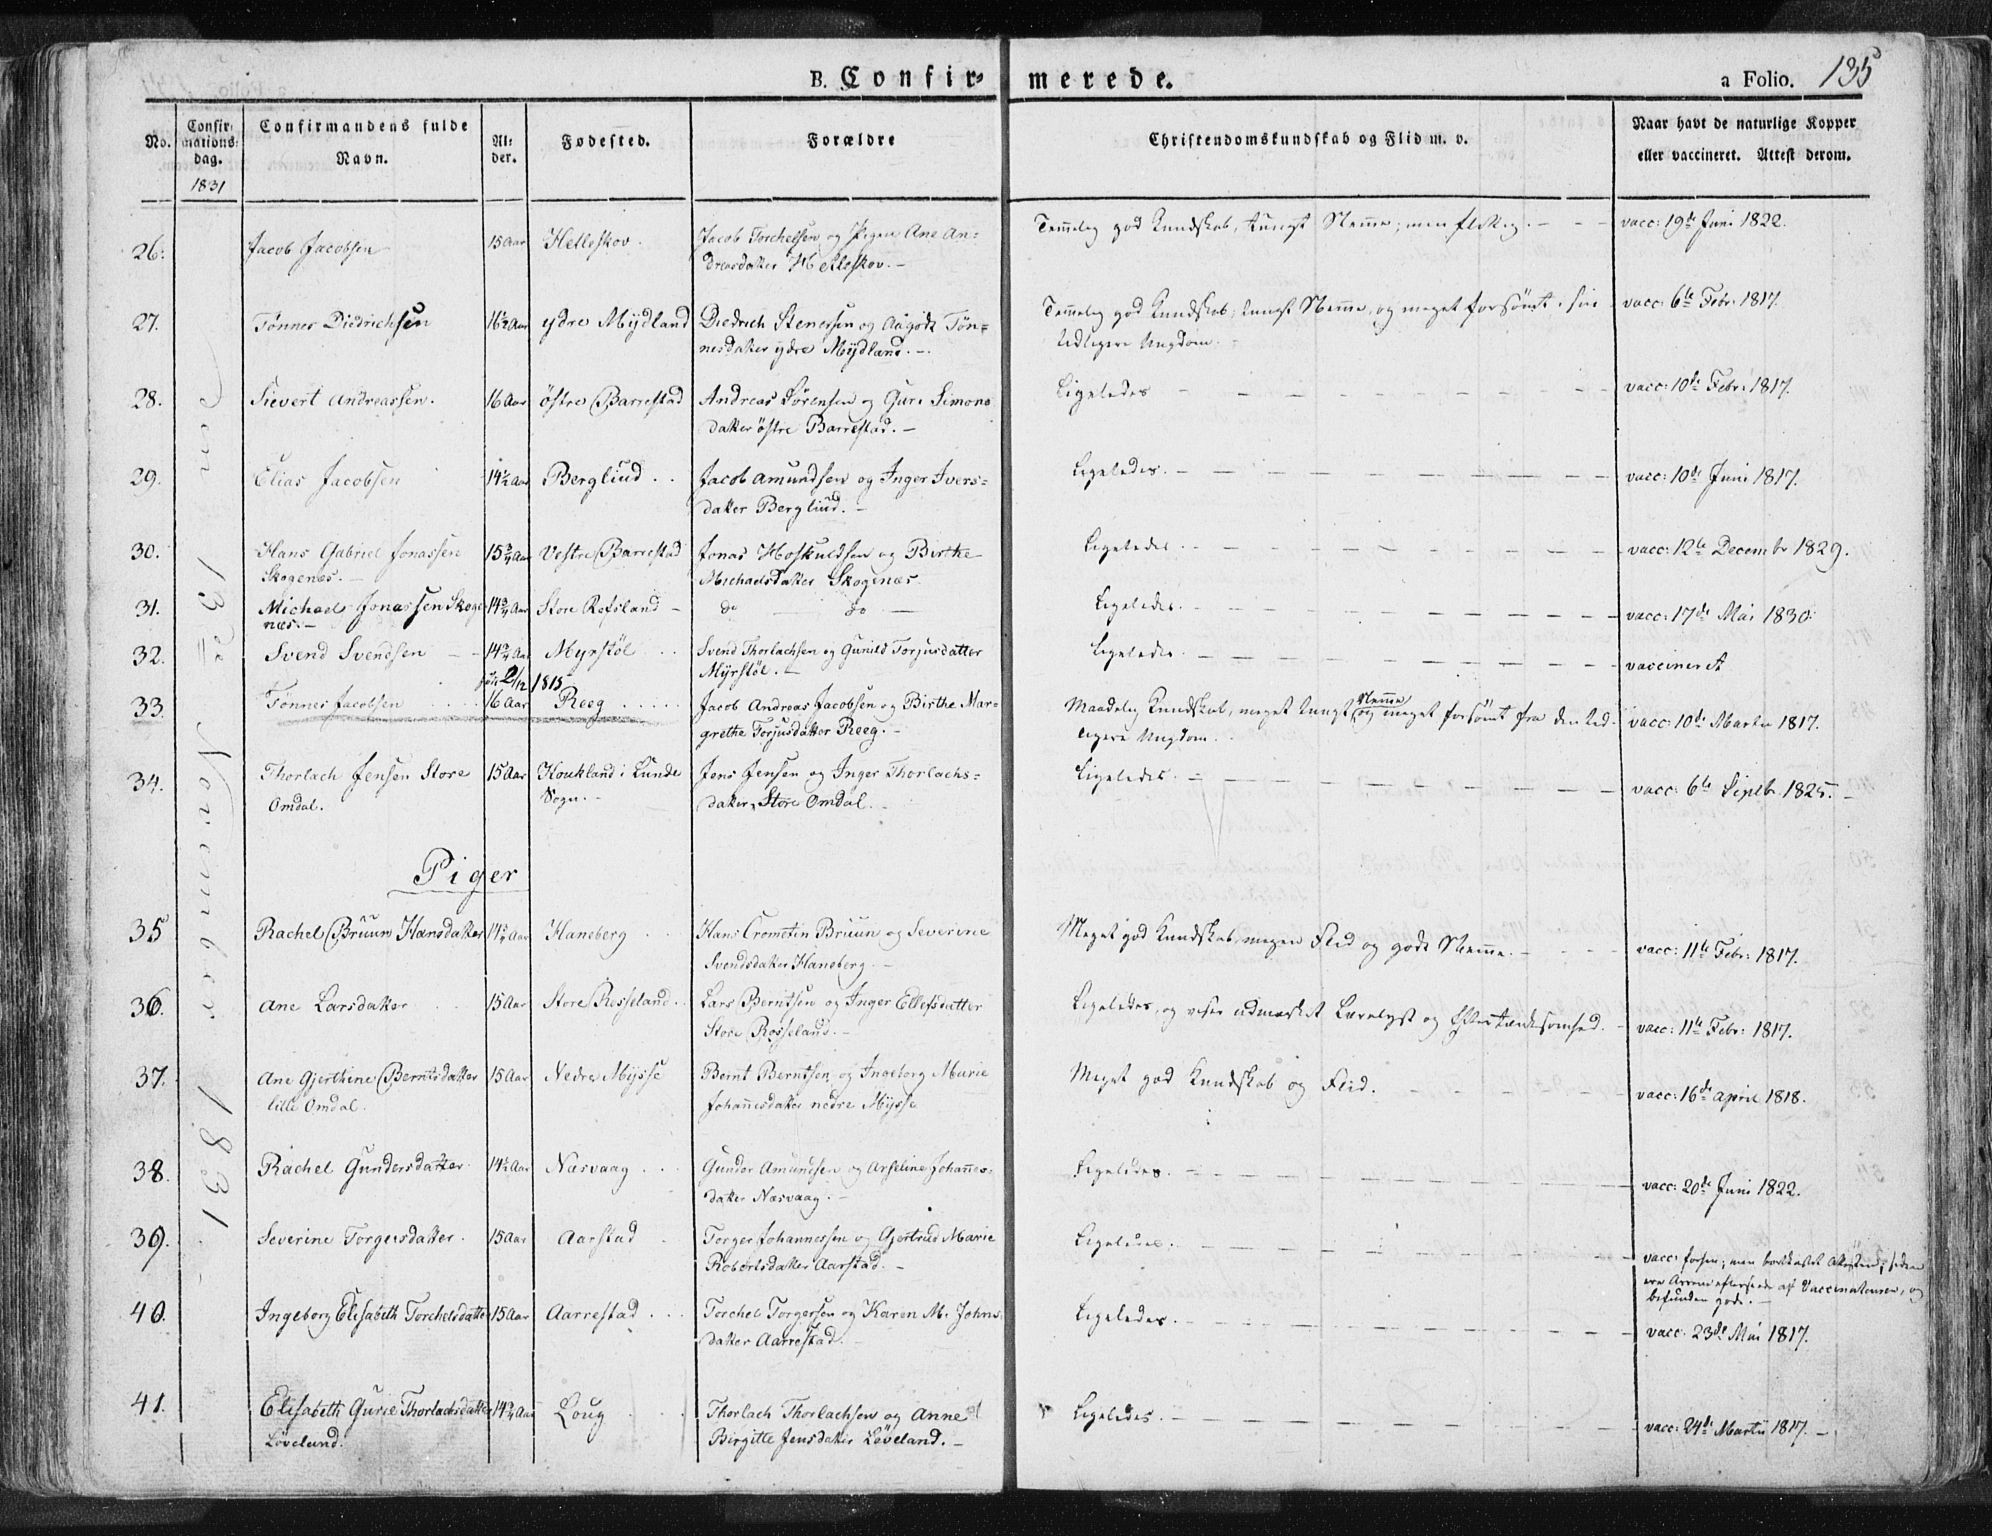 B. Confir- merede. a Folio. 135
No. Confirmations dag. Confirmandens fulde Navn. Alder. Fødested. Forældre Christendomskundskab og Flid m. v. Naar havt de naturlige Kopper eller vaccineret. Attest derom.
1831
Den 13de November 1831.
26. Jacob Jacobsen 15 Aar Helleskov. Jacob Torchelsen og Pigen Ane An= Temmelig god Kundskab, tungt Nemme; men flittig. vacc: 19de Juni 1822.
dreasdatter Helleskov.
27. Tönnes Diedrichsen 16½ Aar ydre Mydland Diedrich Stenersen og Aagodt Tön= Temmelig god Kundskab, tungt Nemme, og meget forsömt i sin vacc: 6te Febr: 1817.
nesdatter ydre Mydland. tidligere Ungdom.
28. Sievert Andreassen. 16 Aar östre Barrestad Andreas Sörensen og Guri Simons Ligeledes vacc: 10de Febr: 1817.
datter östre Barrestad.
29. Elias Jacobsen 14½ Aar Bergliud Jacob Amundsen og Inger Ivers= Ligeledes. vacc: 10de Juni 1817.
datter Bergliud.
30. Hans Gabriel Jonassen 15¾ Aar Vestre Barrestad Jonas Hoskuldsen og Birthe Ligeledes. vacc: 12te Decembr 1829.
Skogenæs. Michaelsdatter Skogenæs
31. Michael Jonassen Skoge 14¾ Aar Store Refsland do do Ligeledes. vacc: 17de Mai 1830.
næs.
32. Svend Svendsen 14¾ Aar Myrstöl Svend Thorlachsen og Gunild Torjusdatter Ligeledes vaccineret
Myrstöl.
2/12 1815
33. Tönnes Jacobsen 16 Aar Reeg Jacob Andreas Jacobsen og Birthe Mar= Maadelig Kundskab, meget tungt Nemme og meget forsömt fra den tid- vacc: 10de Marts 1817.
grethe Torjusdatter Reeg. ligere Ungdom.
34. Thorlach Jensen Store 15 Aar Koukland i Lunde Jens Jensen og Inger Thorlachs= Ligeledes. vacc: 6te Septbr 1825.
Omdal. Sogn. datter, Store Omdal.
Piger
35 Rachel Bruun Hansdatter 14¾ Aar Haneberg Hans Crometin Bruun og Severine Meget god Kundskab, megen Flid og godt Nemme. vacc: 11te Febr: 1817.
Svendsdatter Haneberg.
36. Ane Larsdatter 15 Aar Store Rosseland Lars Berntsen og Inger Ellefsdatter Ligeledes, og viser udmærket Lærelyst og Eftertænksomhed. vacc: 11te Febr: 1817.
Store Rosseland.
37. Ane Gjerthine Berntsdatter 15 Aar Nedre Mysse Bernt Berntsen og Ingeborg Marie Meget god Kundskab og Flid. vacc: 16de April 1818.
lille Omdal. Johannesdatter nedre Mysse
38. Rachel Gundersdatter 14½ Aar Næsvaag Gunder Amundsen og Arseline Johannes= Ligeledes. vacc: 20de Juni 1822.
datter Næsvaag.
39. Severine Torgersdatter. 15 Aar Aarstad Torger Johannessen og Gjertrud Marie Ligeledes. vacc: forsen; men bortkastet Attesten; siden
Robertsdatter Aarstad. ere Arrene efterseede af Vaccinateuren, og
befunden gode.
40. Ingeborg Elisabeth Torchelsdatter 15 Aar Aarrestad Torchel Torgersen og Karen M. Johns Ligeledes. vacc. 23de Mai 1817.
datter Aarrestad.
41. Elisabeth Gurie Thorlachsdatter 14¾ Aar Loug Thorlach Thorlachsen og Anne Ligeledes. vacc: 24de Martii 1817.
Lövelund. Birgitte Jensdatter Löveland.